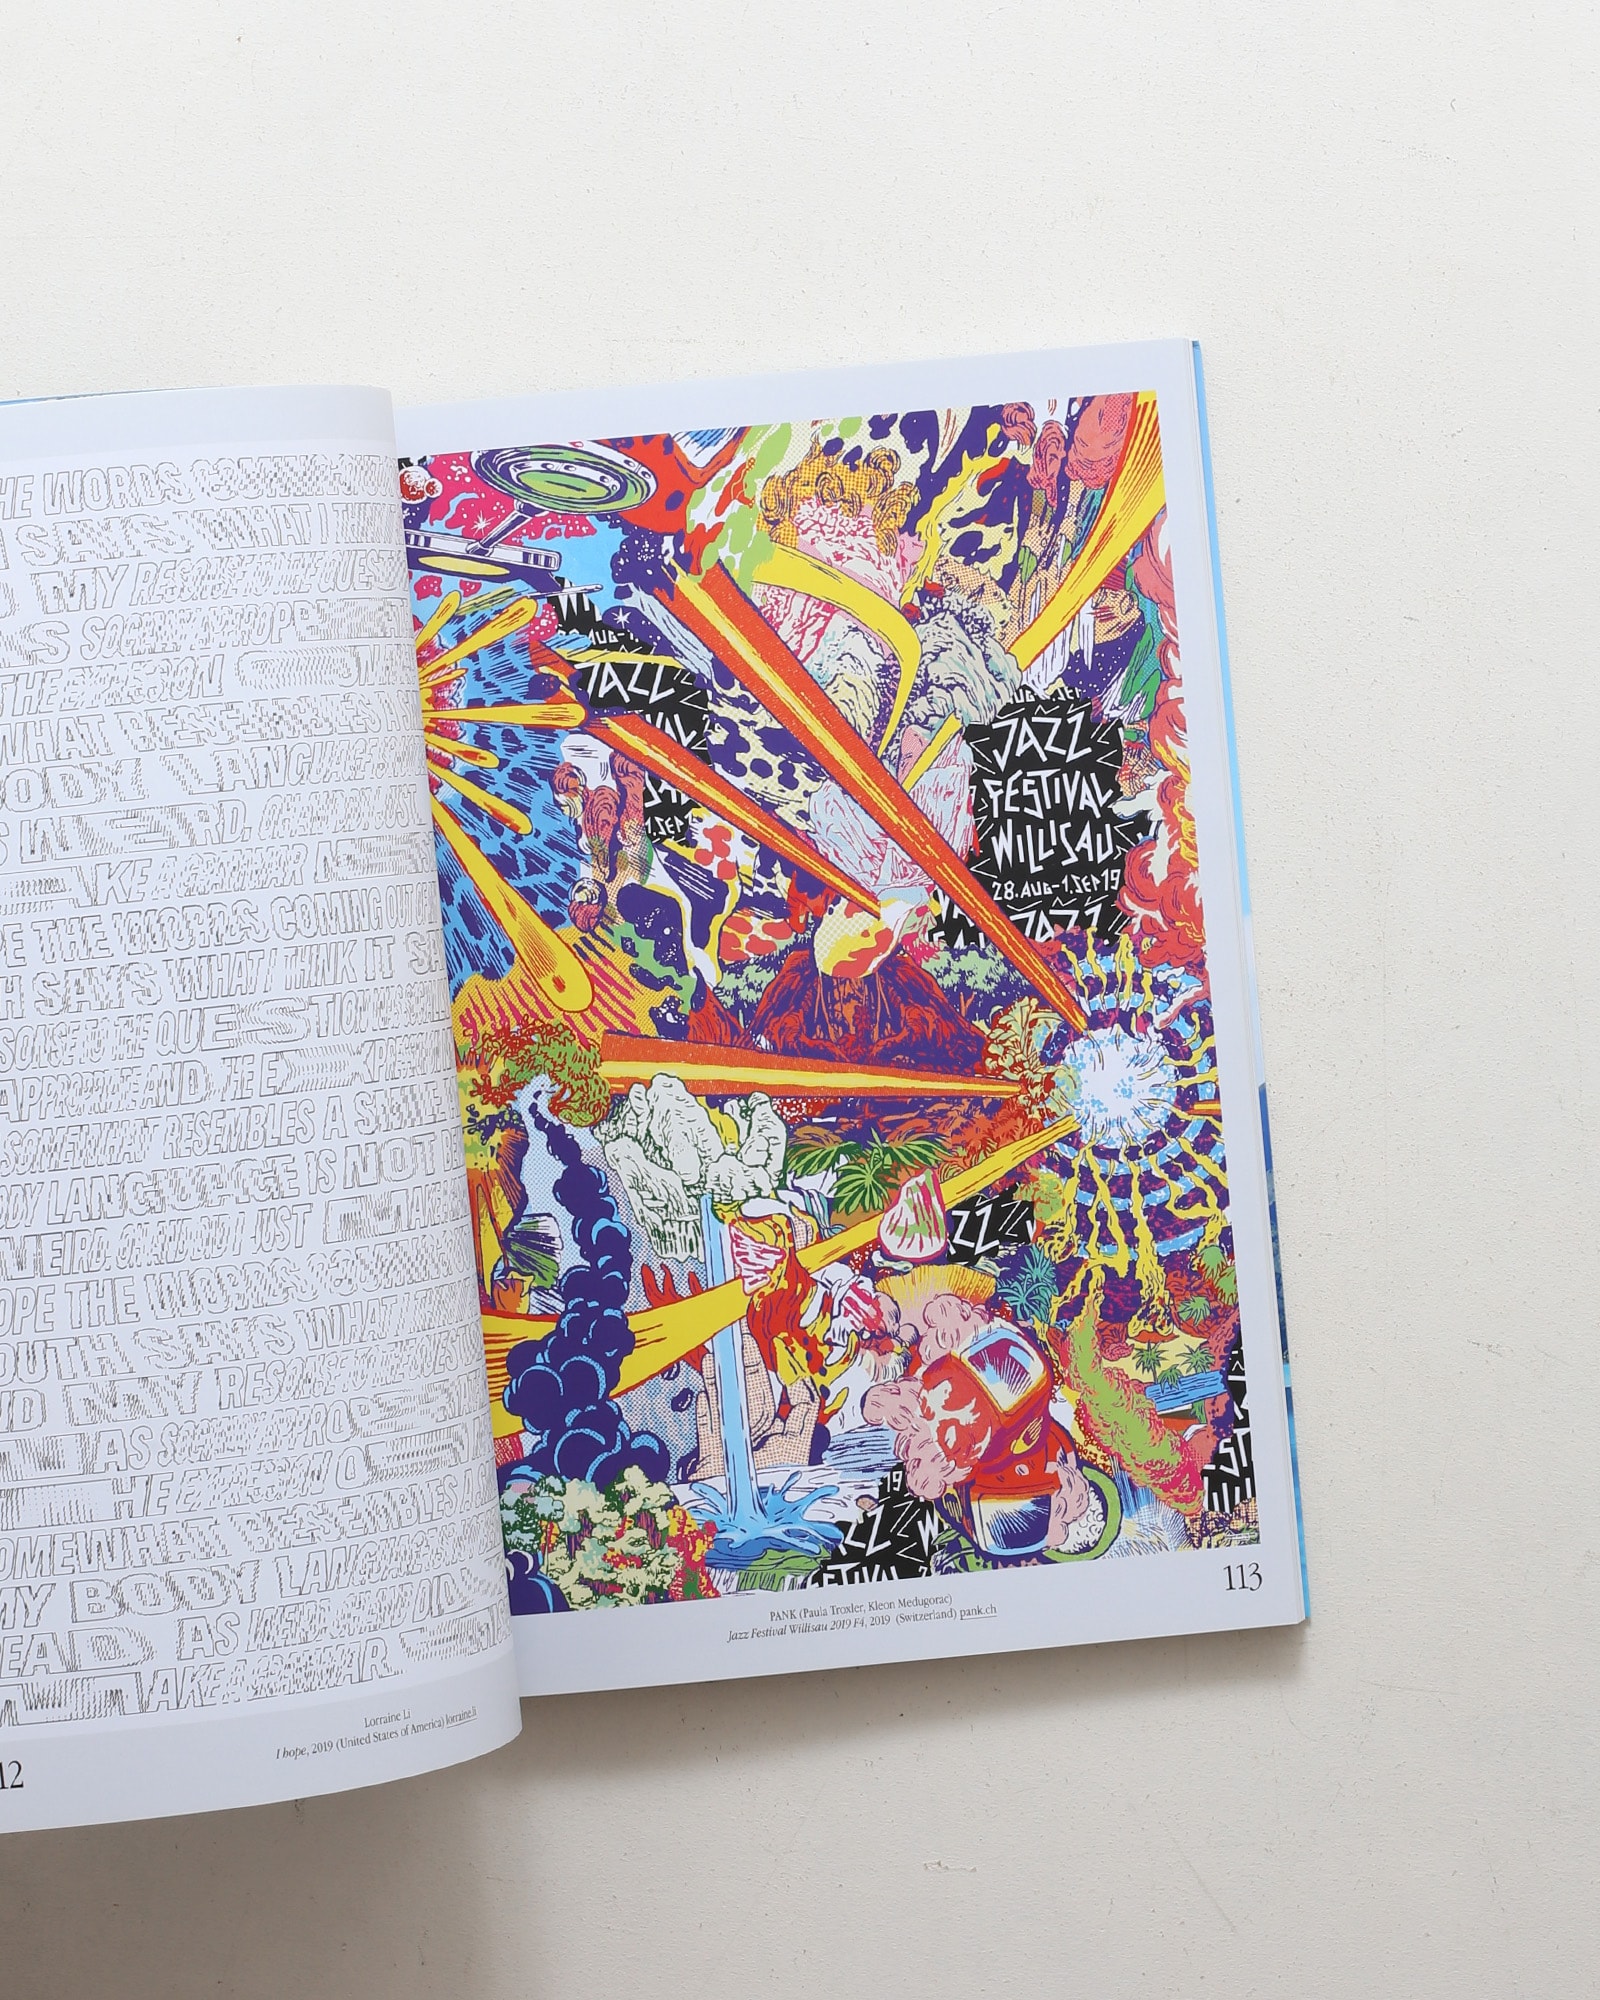 HE WORDS COMING OUT
H SAYS WHAT I THINK
MY RESONSE TO THE QUEST
AS SOCIALLY APPROP
THE EXPRESION
WHAT RESEMBLES A S
BODY LANGUAGE IS NO
AS WEIRD, OH AND DID I JUST
MAKE A GRAMMAR
PE THE WORDS COMING OUT OF
H SAYS WHAT I THINK IT SA
SONSE TO THE QUESTION WAS SOCIALL
APPROPRIATE AND THE EXPRESION
SOMEWHAT RESEMBLES A SMILE
ODY LANGUAGE IS NOT BE
WEIRD, OH AND DID I JUST MAKE A
OPE THE WORDS COMING O
OUTH SAYS WHAT I THINK
ND MY RESONSE TO THE QUESTI
AS SOCIALLY APPROP
HE EXPRESION O
OMEWHAT RESEMBLES A S
MY BODY LANGUAGE IS NO
EAD AS WEIRD, OH AND DID
MAKE A GRAMMAR
Lorraine Li
I hope, 2019 (United States of America) lorraine.li
12
28.AUG-1.
JAZZ
1.SEP
JAZZ
FESTIVAL
WILLISAU
28.AUG-1.SEP19
JAZZ
ZZ
19
ZZ W
ST
113
PANK (Paula Troxler, Kleon Medugorac)
Jazz Festival Willisau 2019 F4, 2019 (Switzerland) pank.ch